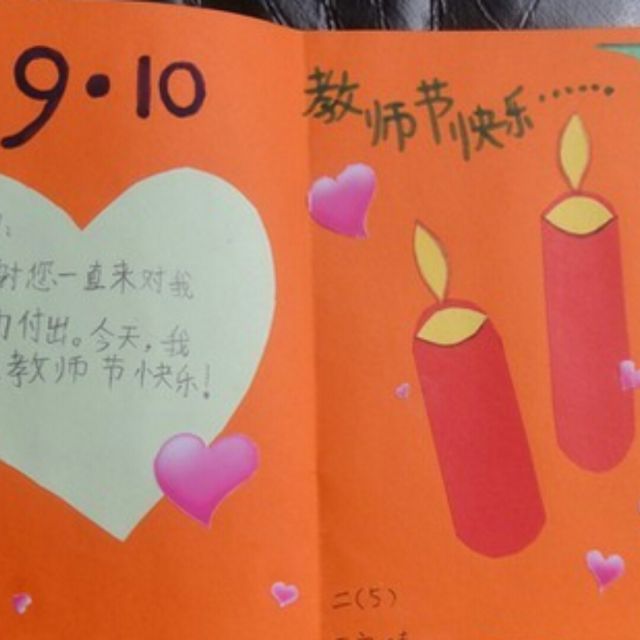 9·10
您一直来对我
付出。今天，我
教师节快乐！
教师节快乐……
二(5)